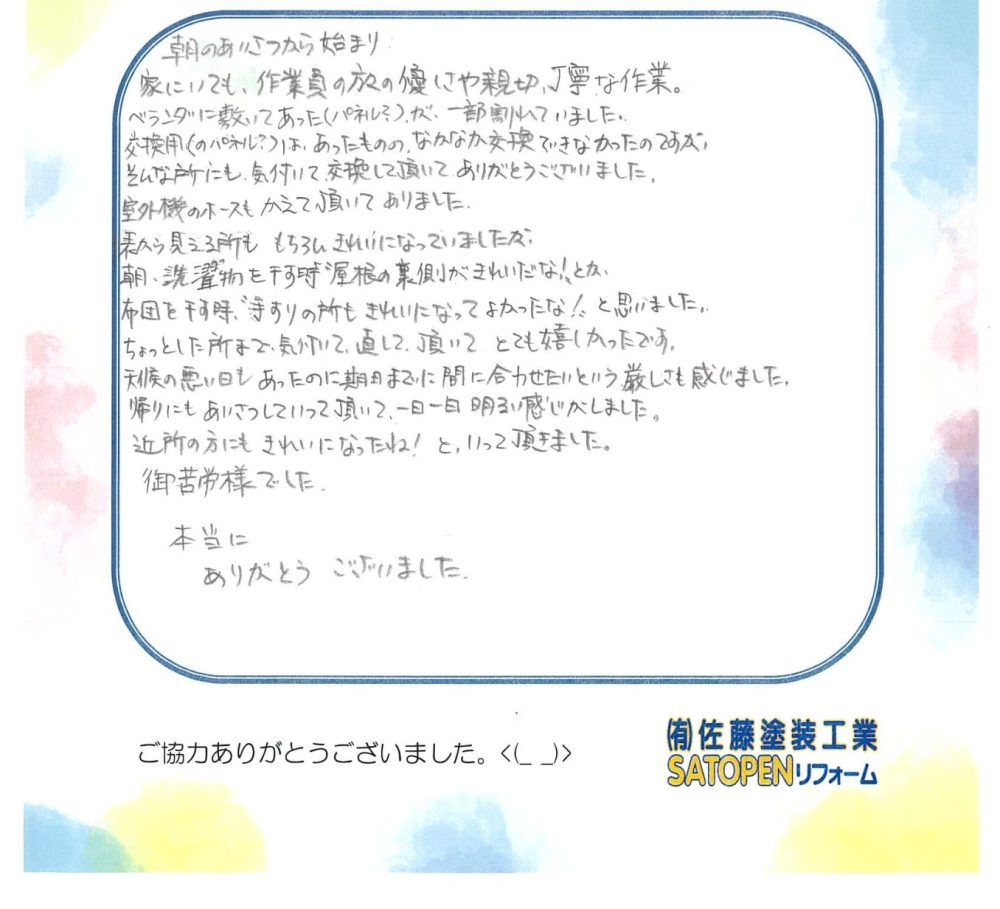 朝のあいさつから始まり
家にいても、作業員の方の優しさや親切、丁寧な作業。
ベランダに敷いてあった(パネル?)が、一部割れていました。
交換用(のパネル?)は、あったものの、なかなか交換できなかったのですが、
そんな所にも、気付いて、交換して頂いて、ありがとうございました。
室外機のホースもかえて頂いてありました。
表から見える所も もちろん きれいになっていましたが、
朝、洗濯物を干す時"屋根の裏側がきれいだな!"とか、
布団を干す時、"手すりの所もきれいになってよかったな!"、と思いました。
ちょっとした所まで、気付いて、直して、頂いて とても嬉しかったです。
天候の悪い日もあったのに期日までに間に合わせたいという厳しさも感じました。
帰りにもあいさつしていって頂いて、一日一日明るい感じがしました。
近所の方にもきれいになったね!と、いって頂きました。
御苦労様でした。
本当に
ありがとう ございました。
ご協力ありがとうございました。<(_ _)>
(有)佐藤塗装工業
SATOPENリフォーム